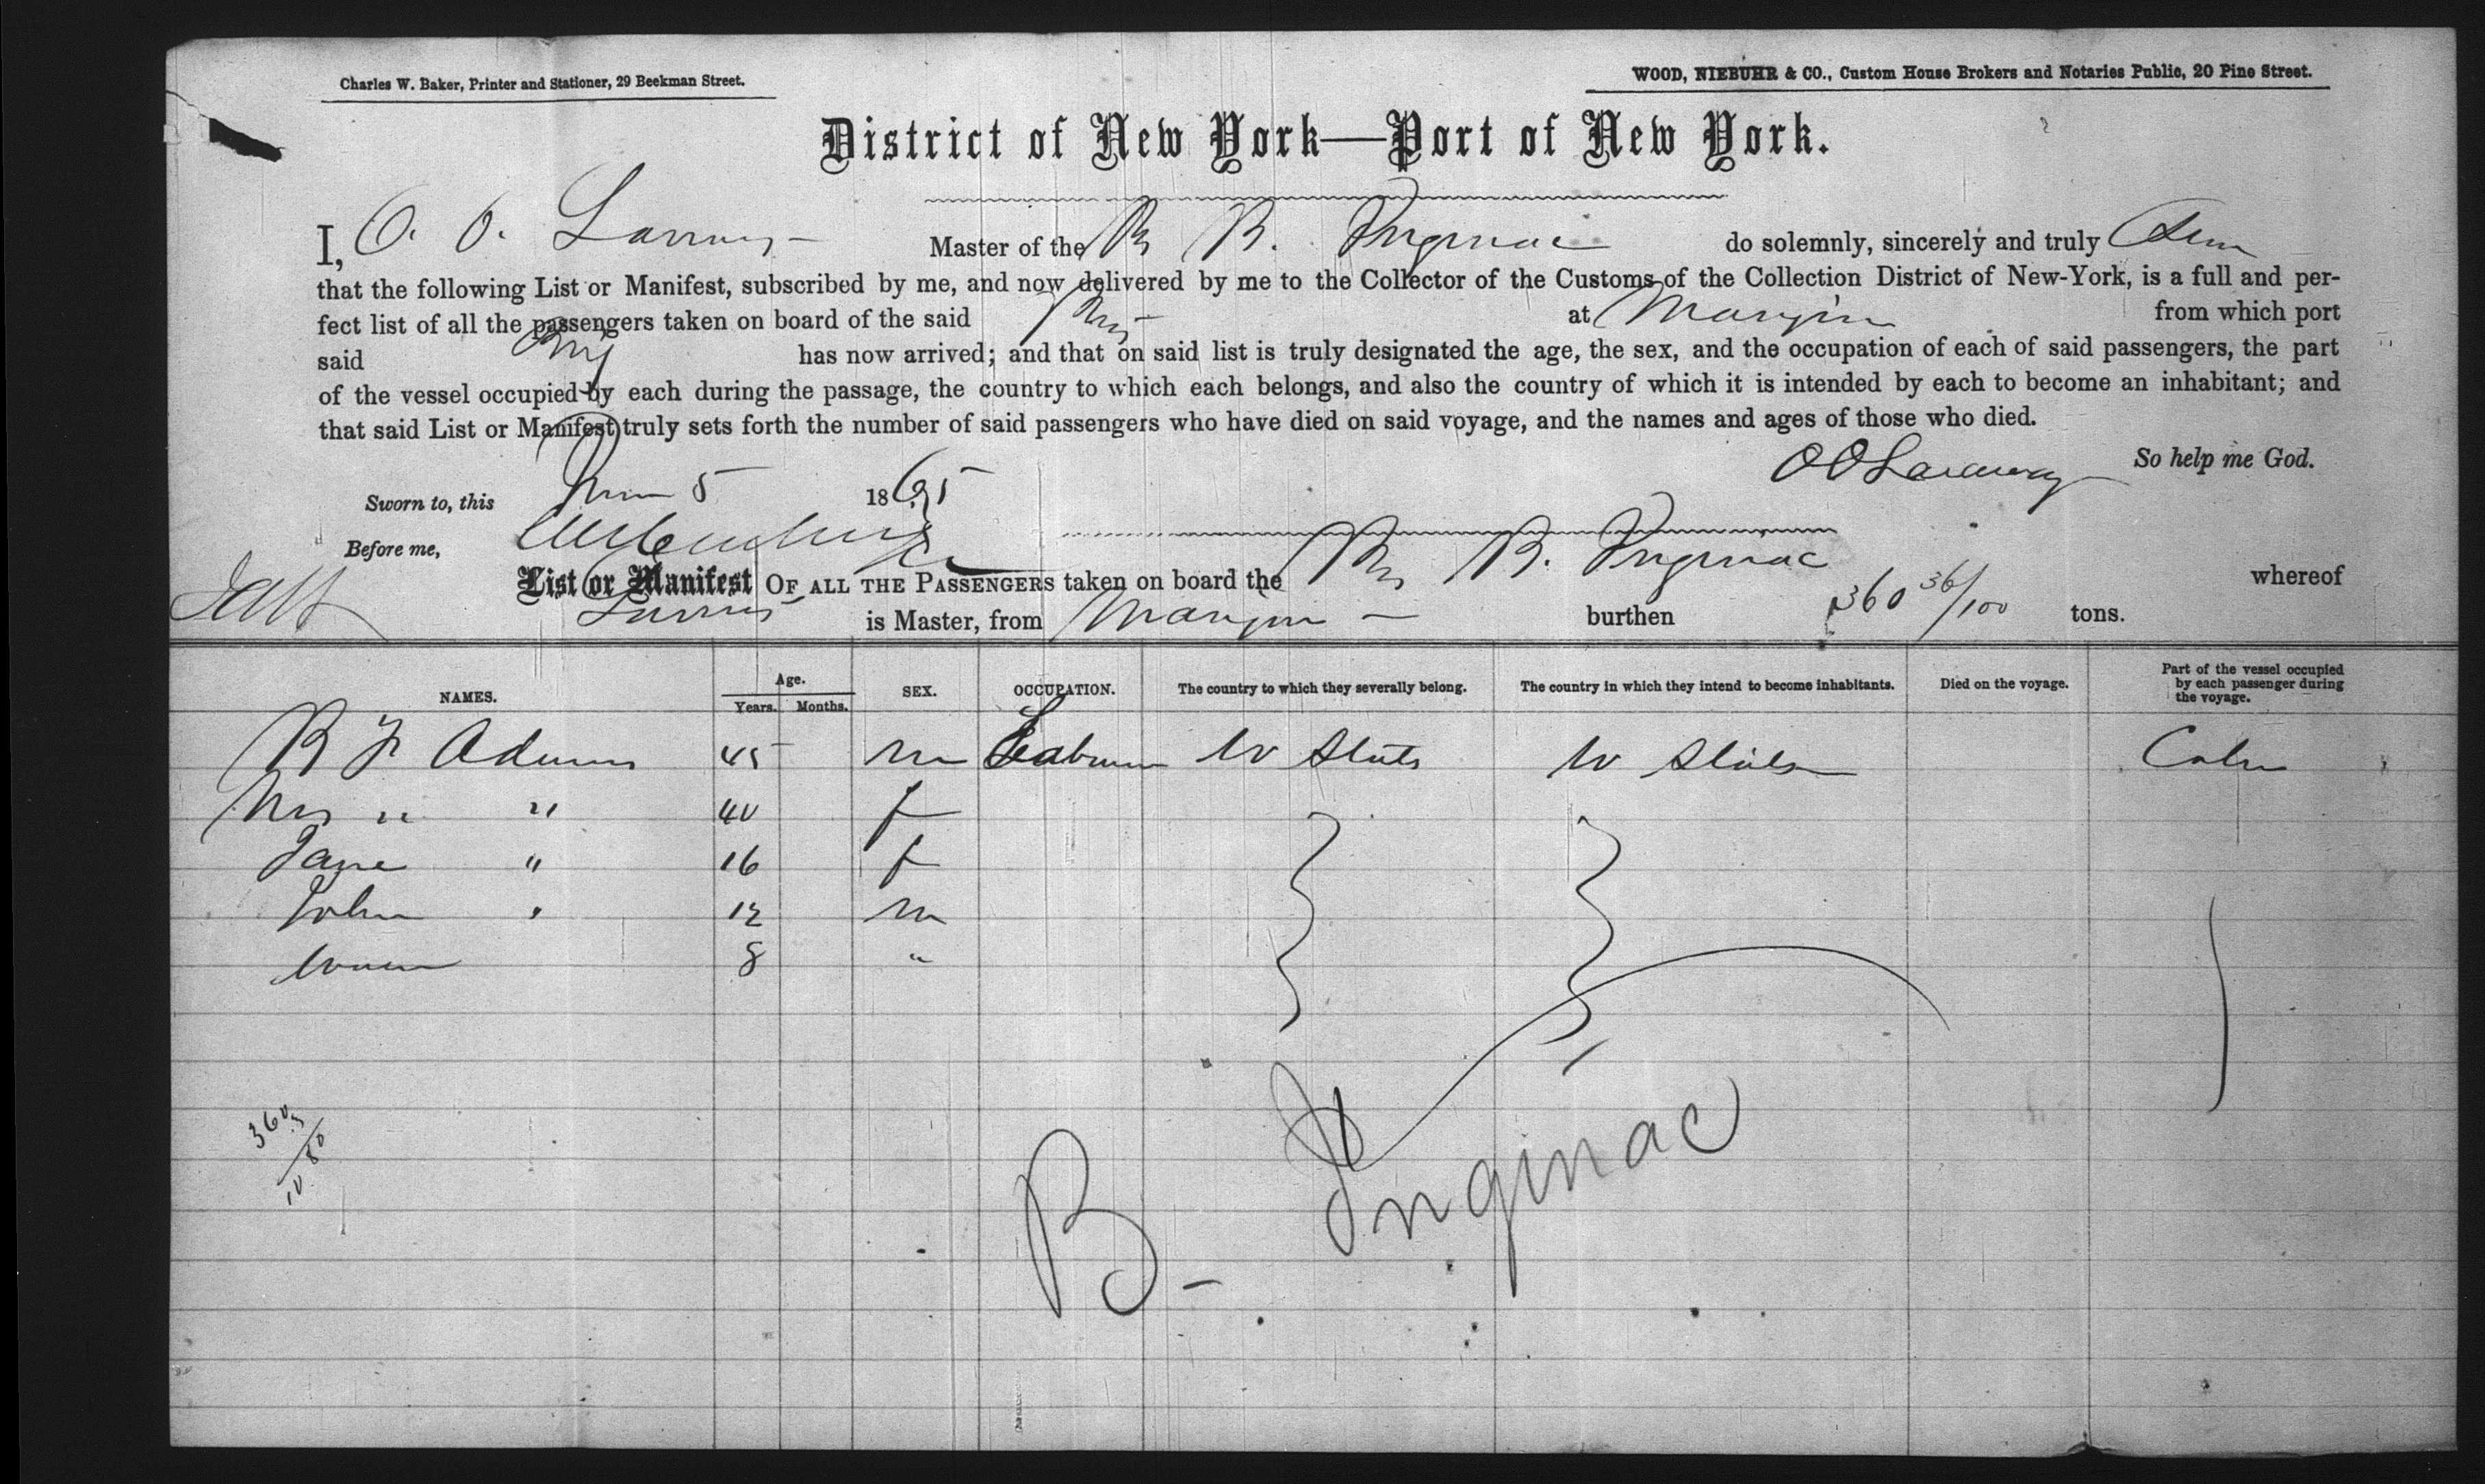 Charles W. Baker, Printer and Stationer, 29 Beekman Street.
WOOD, NIEBUHR & CO., Custom House Brokers and Notaries Public, 20 Pine Street.
District of New York—Port of New York.
I, O. O. Master of the B. Inginac do solemnly, sincerely and truly
that the following List or Manifest, subscribed by me, and now delivered by me to the Collector of the Customs of the Collection District of New-York, is a full and per-
fect list of all the passengers taken on board of the said Brig at from which port
said Brig has now arrived; and that on said list is truly designated the age, the sex, and the occupation of each of said passengers, the part
of the vessel occupied by each during the passage, the country to which each belongs, and also the country of which it is intended by each to become an inhabitant; and
that said List or Manifest truly sets forth the number of said passengers who have died on said voyage, and the names and ages of those who died.
So help me God.
Sworn to, this June 5 1865
Before me,
List or Manifest OF ALL THE PASSENGERS taken on board the B. Inginac whereof
is Master, from burthen 360 36/100 tons.
NAMES. Age. Years. Months. SEX. OCCUPATION. The country to which they severally belong. The country in which they intend to become inhabitants. Died on the voyage. Part of the vessel occupied by each passenger during the voyage.
B F Adams 45 m U States U States Cabin
Mrs " " 40 f
Jane " 16 f
John " 12 m
8 "
B- Inginac